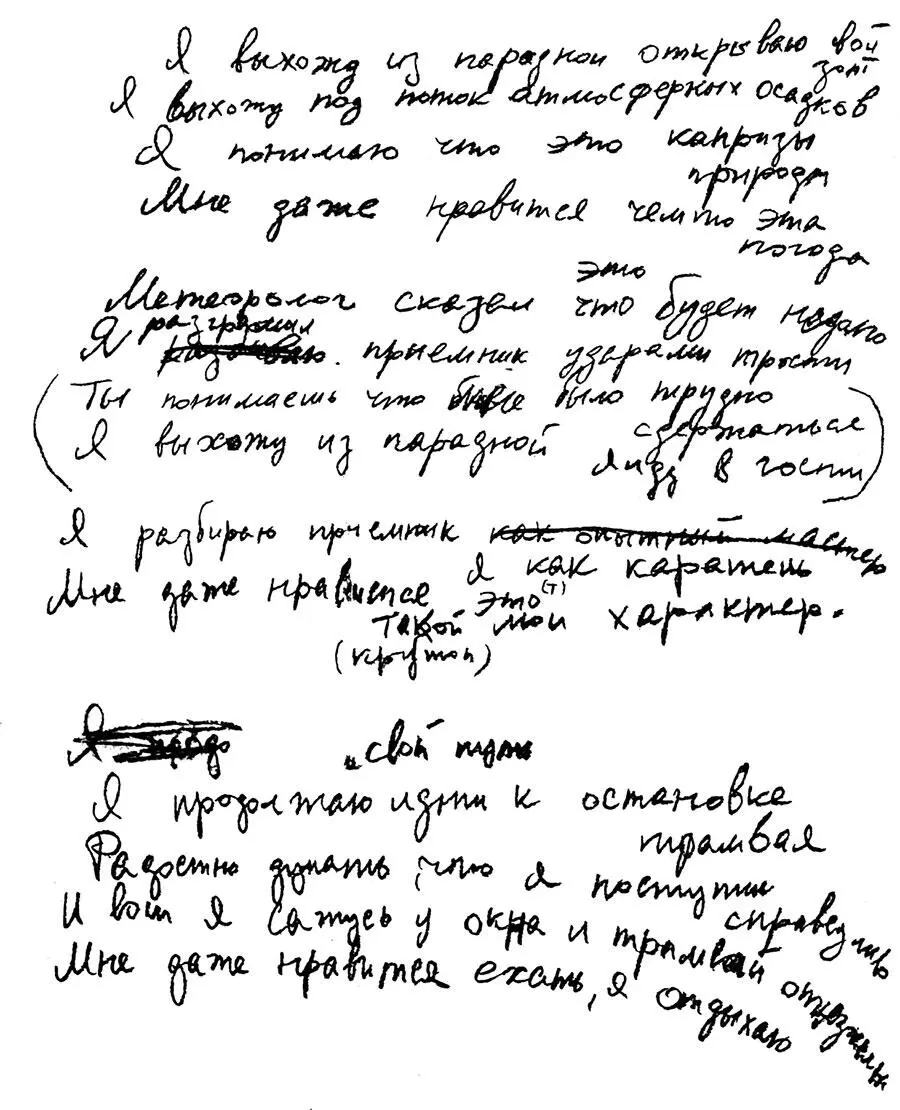 Я выхожу из парадной открываю свой
зонт
Я выхожу под поток атмосферных осадков
Я понимаю что это капризы
природы
Мне даже нравится чем-то эта
погода
это
Метеоролог сказал что будет недолго
разгромил
Я приемник ударами трости
(Ты понимаешь что мне было трудно
сдержаться
Я выхожу из парадной
я иду в гости)
Я разбираю приемник как опытный мастер
Я как каратель
Мне даже нравится это(т)
такой мой характер.
(крутой)
Я
свой путь
Я продолжаю идти к остановке
трамвая
Радостно думать, что я поступил
справедливо
И вот я сажусь у окна и трамвай отъезжает
Мне даже нравится ехать, я отдыхаю